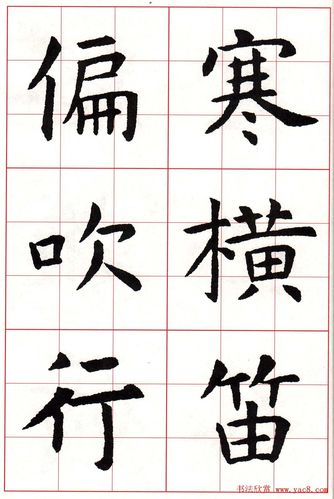 寒横笛
偏吹行
书法欣赏 www.yac8.com